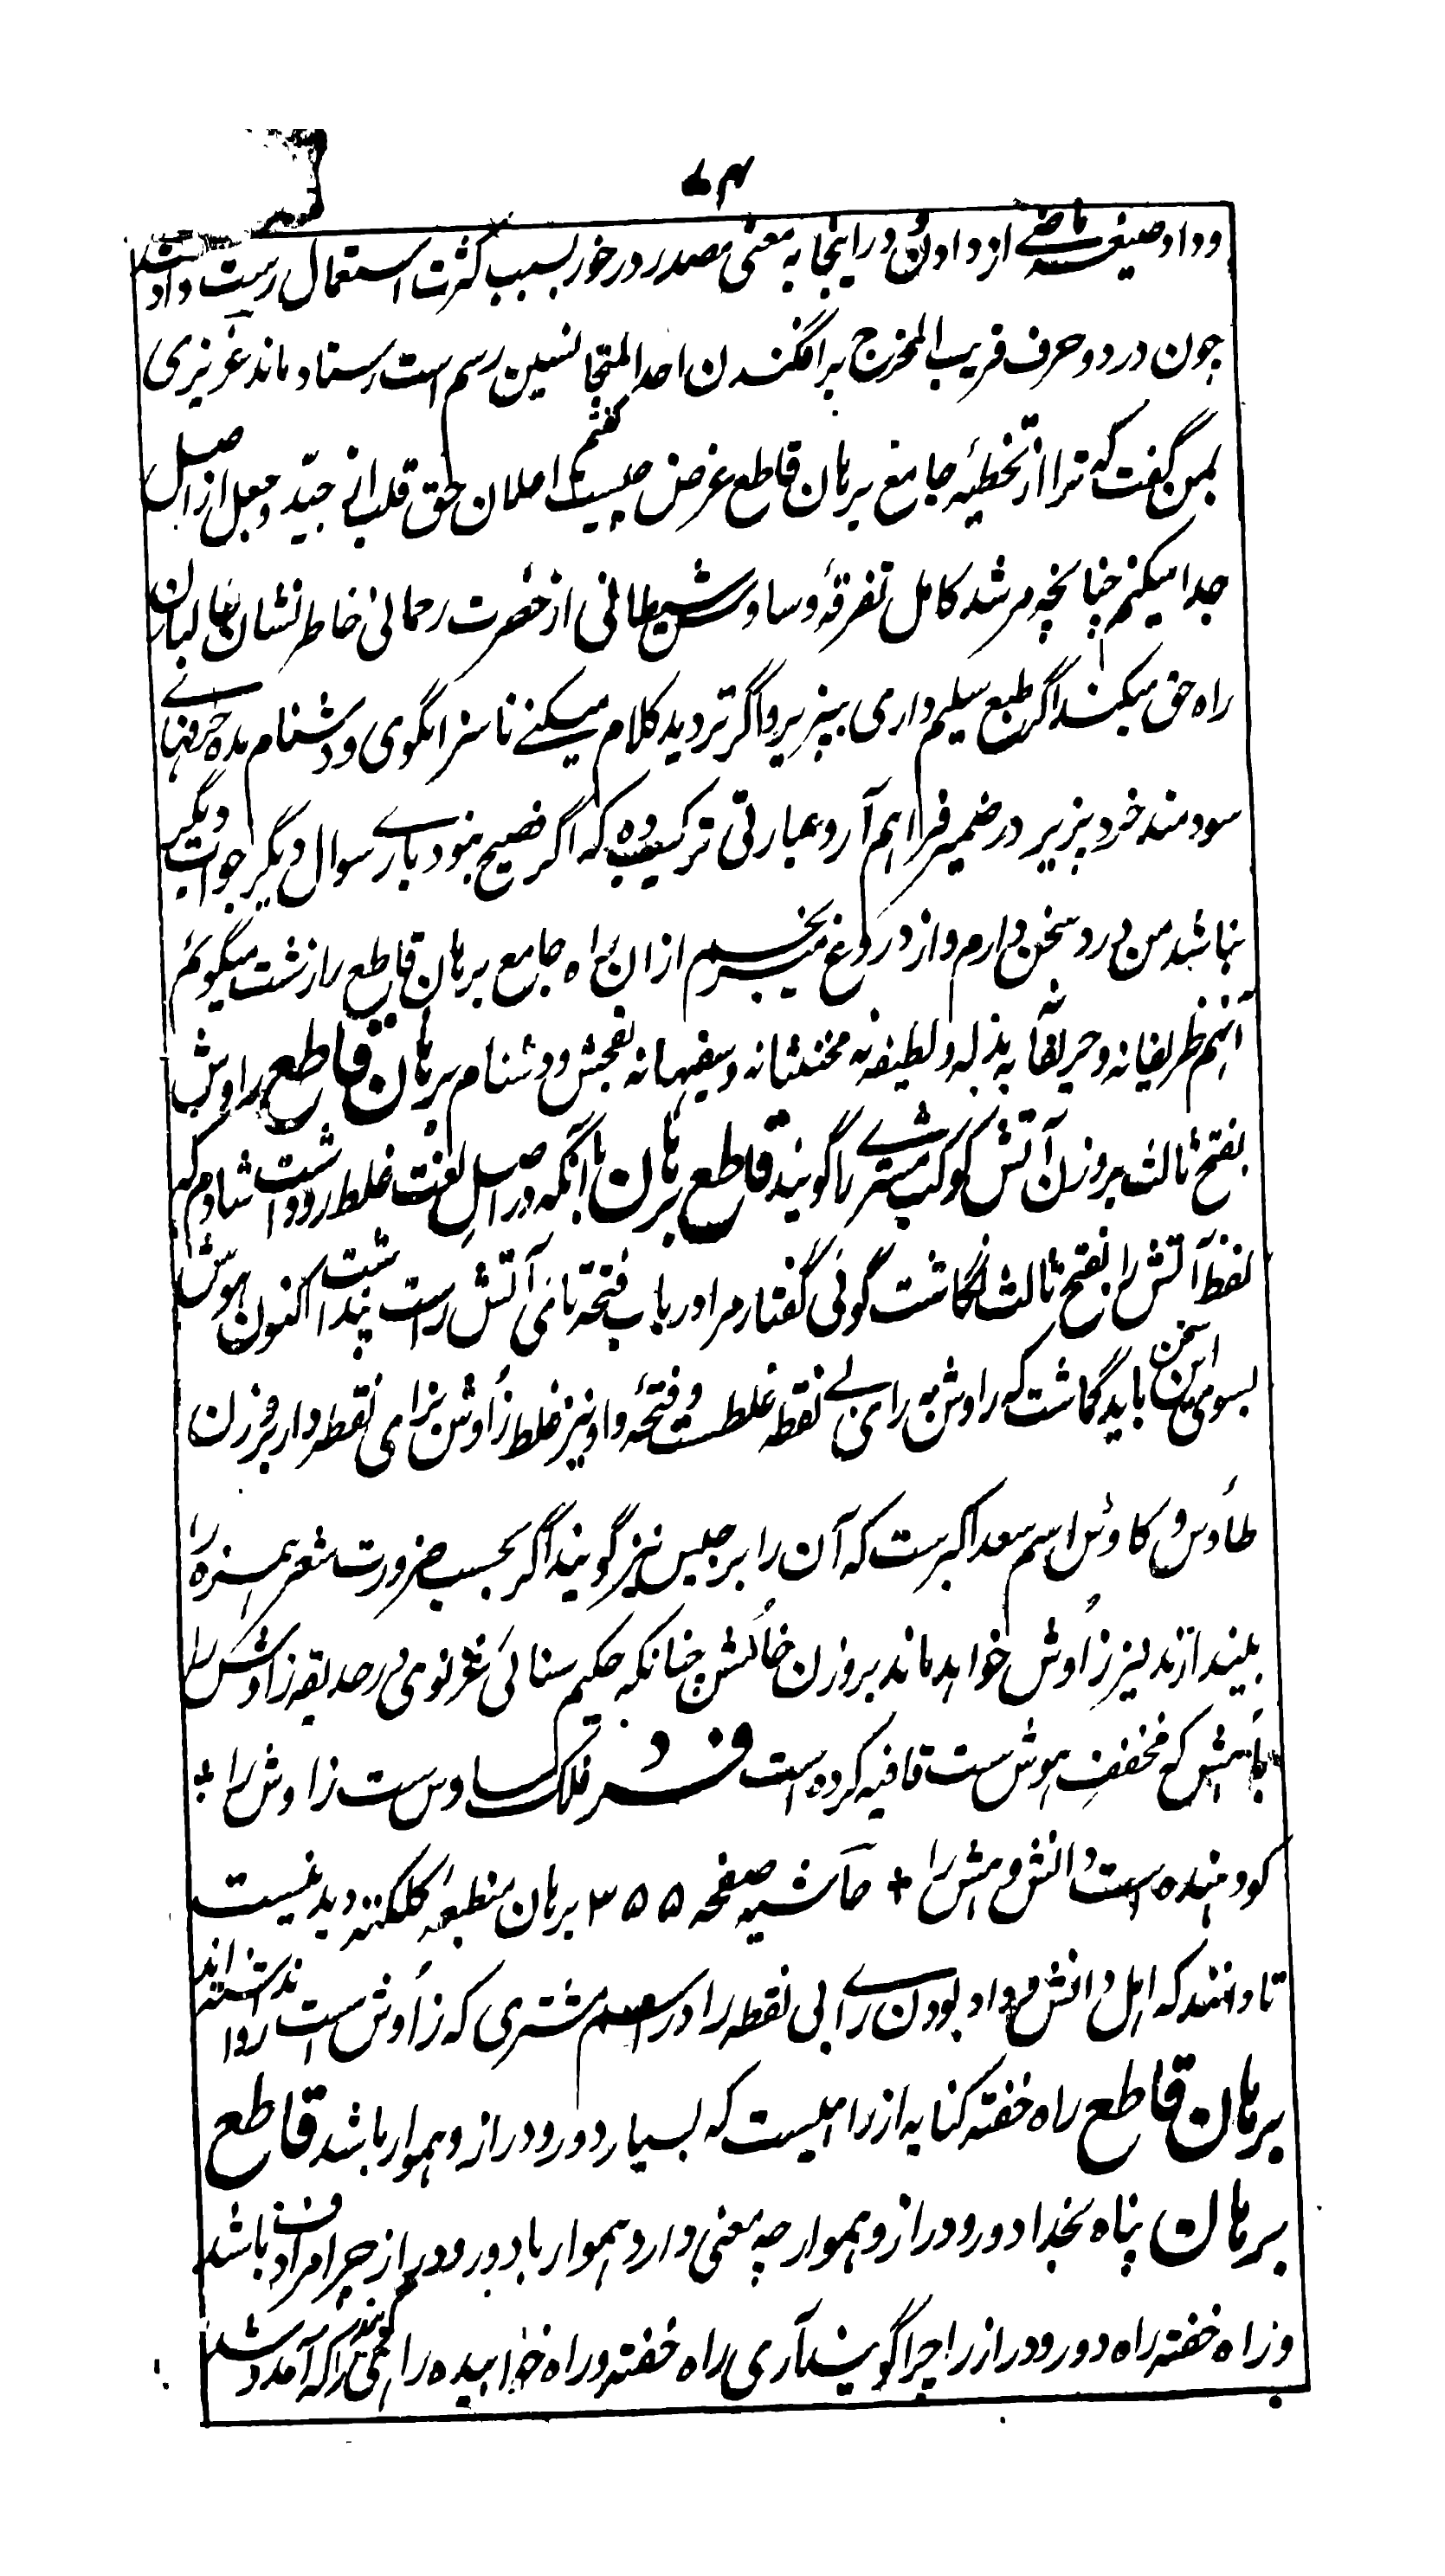 ۷۴
و داد صیغهٔ ماضی از دادن و در اینجا به معنی مصدر در خور بسبب کثرت استعمال رست داد شد
چون در دو حرف قریب المخرج برافگندن احد المتجانسین رسم است رستاد ماند عزیزی
بمن گفت که ترا از تخطیهٔ جامع برهان قاطع غرض چیست گفتم اعلان حق قلب از جیّد و جعل از اصل
جدا میکنم چنانچه مرشد کامل تفرقهٔ وساوس شیطانی از حضرت رحمانی خاطر نشان طالبان
راه حق میکند اگر طبع سلیم داری بپذیر و اگر تردید کلام میکنی ناسزا مگوی و دشنام مده حرفهای
سودمند خرد پذیر در ضمیر فراهم آر و عبارتی ترکیب ده که اگر فصیح نبود باری سوال دیگر جواب دیگر
نباشد من درد سخن دارم و از دروغ میرنجم ازان راه جامع برهان قاطع را زشت میگویم
آنهم ظریفانه و حریفانه به بذله و لطیفه نه مخنثانه و سفیهانه بفحش و دشنام برهان قاطع راوش
بفتح ثالث بروزن آتش کوکب مشتری را گویند قاطع برهان با آنکه در اصل لغت غلط رو داشت شادم که
لفظ آتش را بفتح ثالث نگاشت گوئی گفتار مرا در باب فتحه تای آتش راست پنداشت اکنون هوش
بسوی این سخن باید گماشت که راوش به رای بی نقطه غلطست و فتحهٔ واو نیز غلط زاوش بزای نقطه دار بر وزن
طاوس و کاوس اسم سعد اکبرست که آن را برجیس نیز گویند اگر بحسب ضرورت شعر همزه را
بیندازند نیز زاوش خواهد ماند بروزن خامُش چنانکه حکیم سنائی غزنوی در حدیقه زاوش را
با هُش که مخفف هوش ست قافیه کرده است فرد فلک ساوس ست زاوش را ÷
کو دهنده است دانش و هش را + حاشیه صفحه ۳۵۵ برهان منطبعهٔ کلکته دیدنیست
تا دانند که اهل دانش و داد بودن رای بی نقطه را در اسم مشتری که زاوش است روا نداشته اند
برهان قاطع راه خفته کنایه از راهیست که بسیار دور و دراز و هموار باشد قاطع
برهان پناه بخدا دور و دراز و هموار چه معنی دارد هموار با دور و دراز چرا مرادف باشد
و راه خفته راه دور و دراز را چرا گویند آری راه خفته و راه خوابیده راهی را گویند که آمد و شد